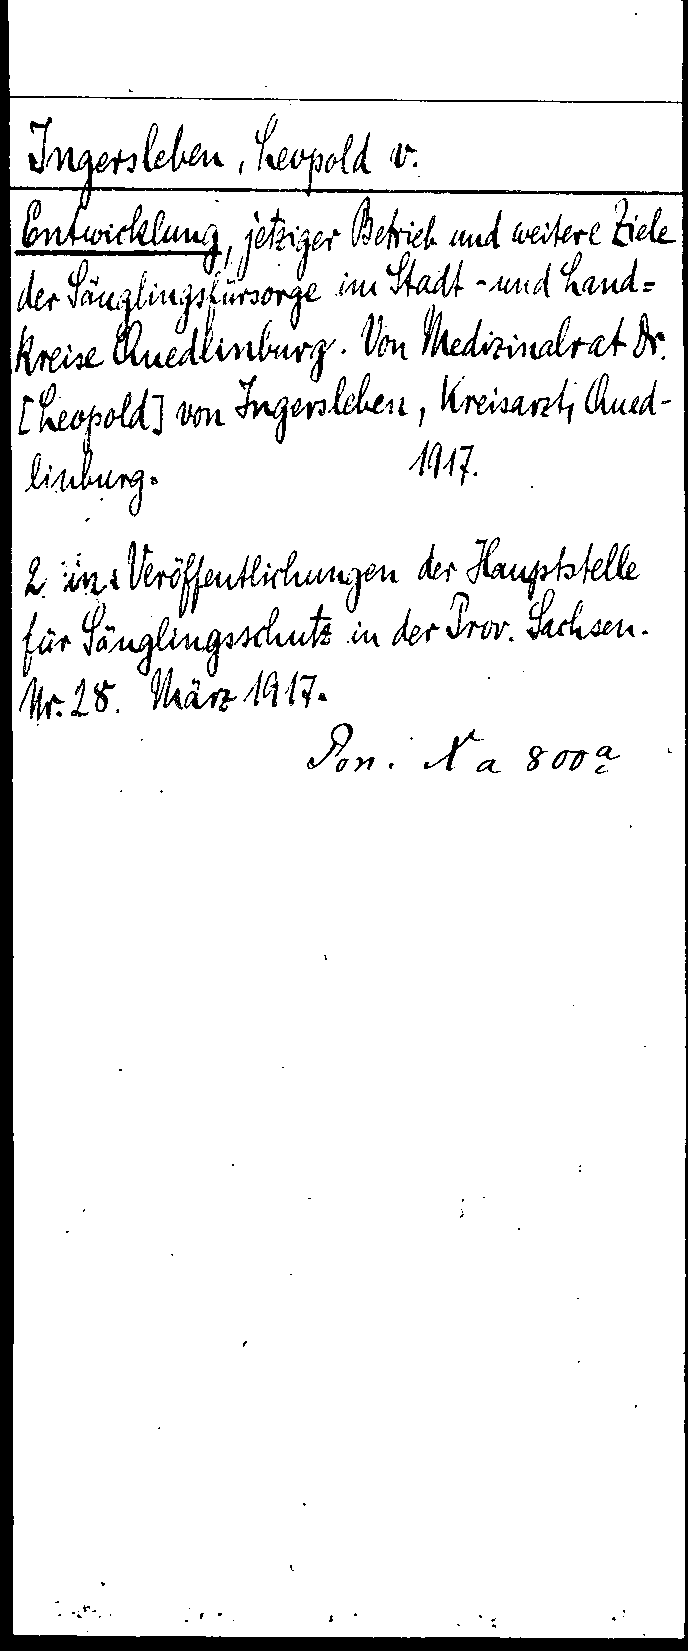 Ingersleben, Leopold v.
Entwicklung, jetziger Betrieb und weitere Ziele
der Säuglingsfürsorge im Stadt- und Land=
kreise Quedlinburg. Von Medizinalrat Dr.
[Leopold] von Ingersleben, Kreisarzt, Qued-
linburg. 1917.
2 in: Veröffentlichungen der Hauptstelle
für Säuglingsschutz in der Prov. Sachsen.
Nr. 28. März 1917.
Pon. Na 800a